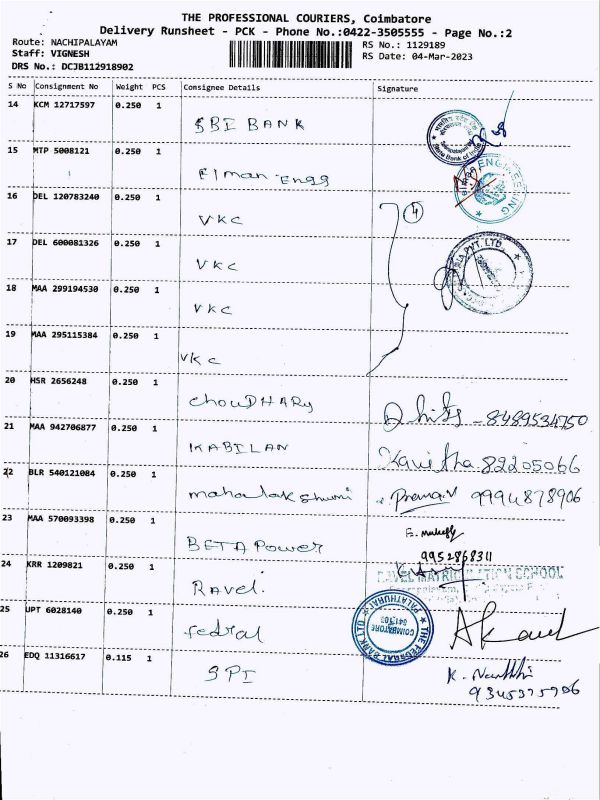 THE PROFESSIONAL COURIERS, Coimbatore
Delivery Runsheet - PCK - Phone No.:0422-3505555 - Page No.:2
Route: NACHIPALAYAM
RS No.: 1129189
Staff: VIGNESH
RS Date: 04-Mar-2023
DRS No.: DCJB112918902
S No Consignment No Weight PCS Consignee Details Signature
14 KCM 12717597 0.250 1
SBI BANK
15 MTP 5008121 0.250 1
Elman Engg
ENGINEERING
16 DEL 120783240 0.250 1
4
VKC
17 DEL 600081326 0.250 1
PVT. LTD.
VKC
18 MAA 299194530 0.250 1
VKC
19 MAA 295115384 0.250 1
VKC
20 HSR 2656248 0.250 1
CHOUDHARY
8489534750
21 MAA 942706877 0.250 1
KABILAN
Kavitha 82205066
22 BLR 540121084 0.250 1
mahalakshumi
Prema.V 9994878906
23 MAA 570093398 0.250 1
BETA Power
9952868311
24 KRR 1209821 0.250 1
MATRICULATION SCHOOL
Ravel.
25 UPT 6028140 0.250 1
fedral
THE FEDERAL BANK LTD.
PALATHURAI
COIMBATORE
641 103
26 EDQ 11316617 0.115 1
SPI
K.
9345375906